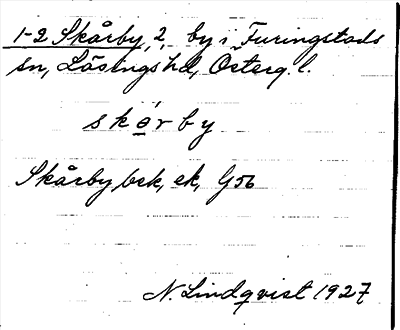 1-2 Skårby, 2, by i Furingstads
sn, Lösings hd, Österg. l.
skǿrby
Skårby bek, ek, G56
N. Lindqvist 1927